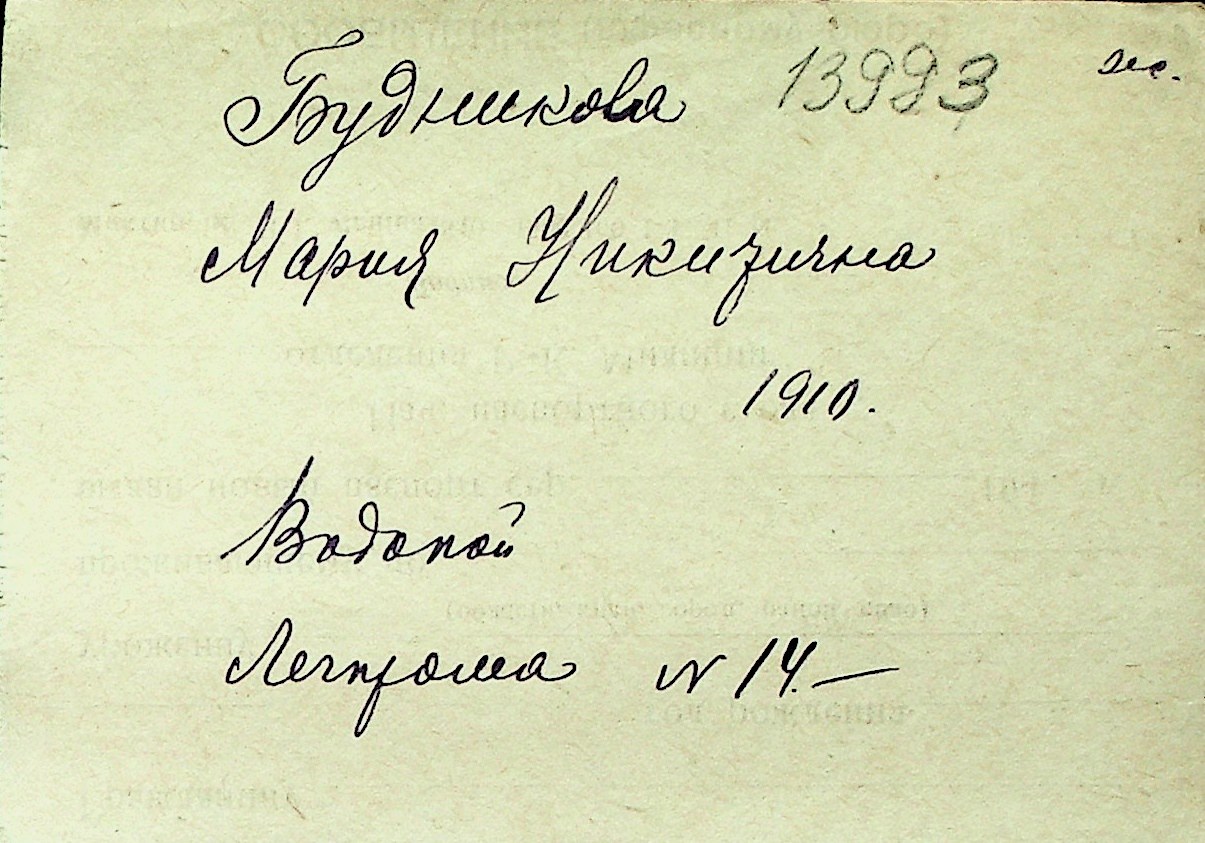 Будникова 13993 лес.
Мария Никизична
1910.
Водопой
Легпрома N 14. —